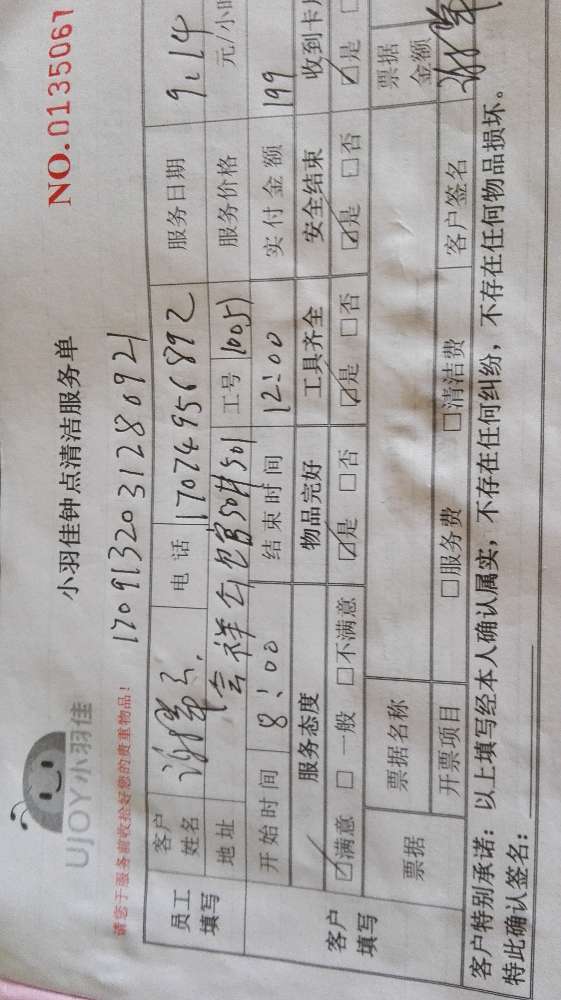 UJOY小羽佳
小羽佳钟点清洁服务单
NO.0135061
请您于服务前收拾好您的贵重物品!
1709132031280921
员工填写 客户姓名 电话 17074956892 服务日期 9.14
地址 工号 服务价格 元/小时
客户填写 开始时间 8:00 结束时间 12:00 实付金额 199
服务态度 物品完好 工具齐全 安全结束 收到卡
☑满意 □一般 □不满意 ☑是 □否 ☑是 □否 ☑是 □否 ☑是 □
票据 票据名称 票据金额
开票项目 □服务费 □清洁费 客户签名
客户特别承诺：以上填写经本人确认属实，不存在任何纠纷，不存在任何物品损坏。
特此确认签名：